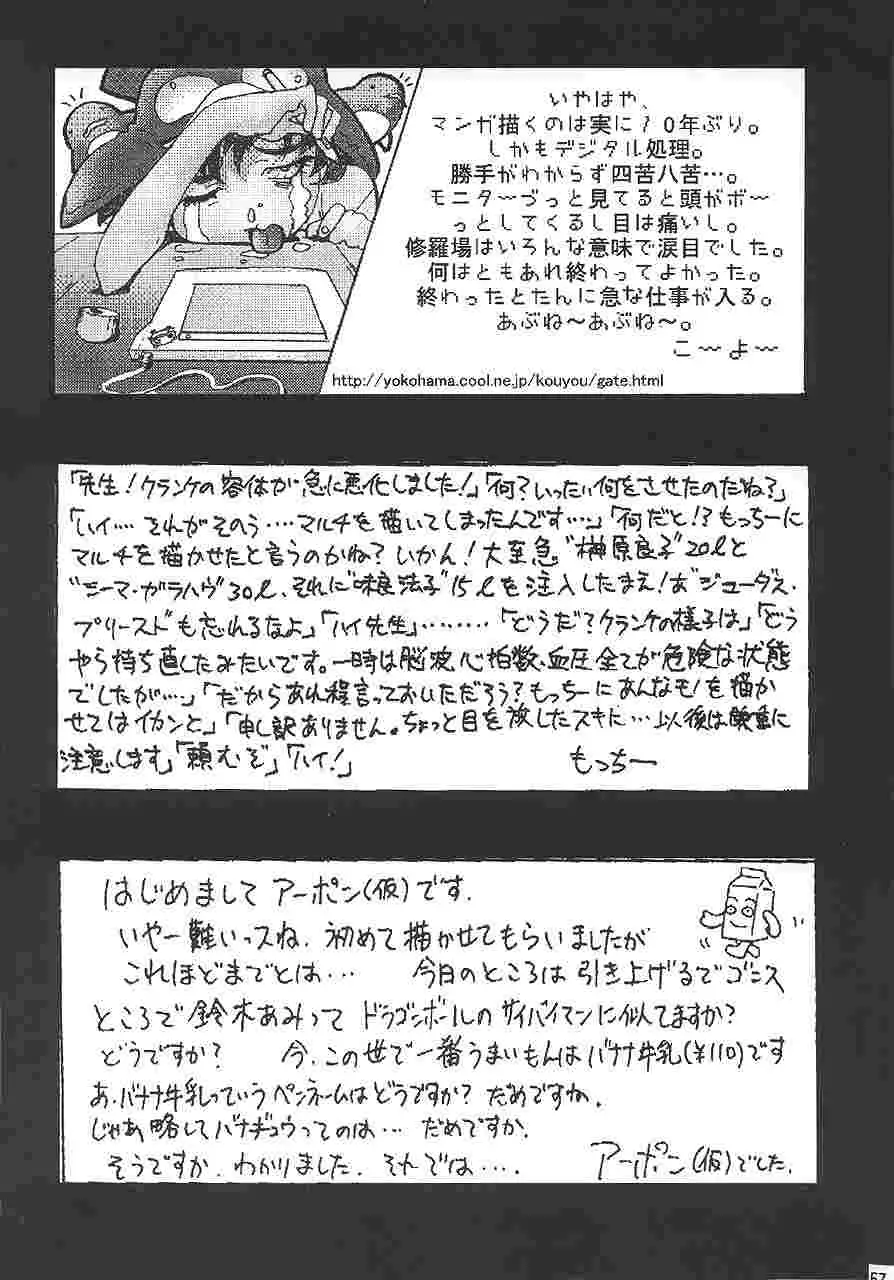 いやはや、
マンガ描くのは実に10年ぶり。
しかもデジタル処理。
勝手がわからず四苦八苦…。
モニタ〜づっと見てると頭がボ〜
っとしてくるし目は痛いし。
修羅場はいろんな意味で涙目でした。
何はともあれ終わってよかった。
終わったとたんに急な仕事が入る。
あぶね〜あぶね〜。
こ〜よ〜
http://yokohama.cool.ne.jp/kouyou/gate.html
「先生!クランケの容体が急に悪化しました!」「何?いったい何をさせたのだね?」
「ハイ…. それがそのう‥‥マルチを描いてしまったんです…」「何だと!?もっちーに
マルチを描かせたと言うのかね?いかん!大至急“榊原良子”20lと
“シーマ・ガラハウ”30l、それに“味良法子”15lを注入したまえ!あ“ジューダス・
プリースト”も忘れるなよ」「ハイ先生」………「どうだ?クランケの様子は」「どう
やら持ち直したみたいです。一時は脳波、心拍数、血圧全てが危険な状態
でしたが…」「だからあれ程言っておいただろう?もっちーにあんなモノを描か
せてはイカンと」「申し訳ありません。ちょっと目を放したスキに…以後は慎重に
注意します」「頼むぞ」「ハイ!」 もっちー
はじめまして アーポン(仮)です.
いやー難いっスね. 初めて描かせてもらいましたが
これほどまでとは… 今日のところは引き上げるでゴンス
ところで鈴木あみって ドラゴンボールのサイバイマンに似てますか?
どうですか? 今、この世で一番うまいもんはバナナ牛乳(¥110)です
あ、バナナ牛乳っていうペンネームはどうですか? だめですね.
じゃあ略してバナギュウってのは… だめですか.
そうですか. わかりました. それでは…. アーポン(仮)でした.
57